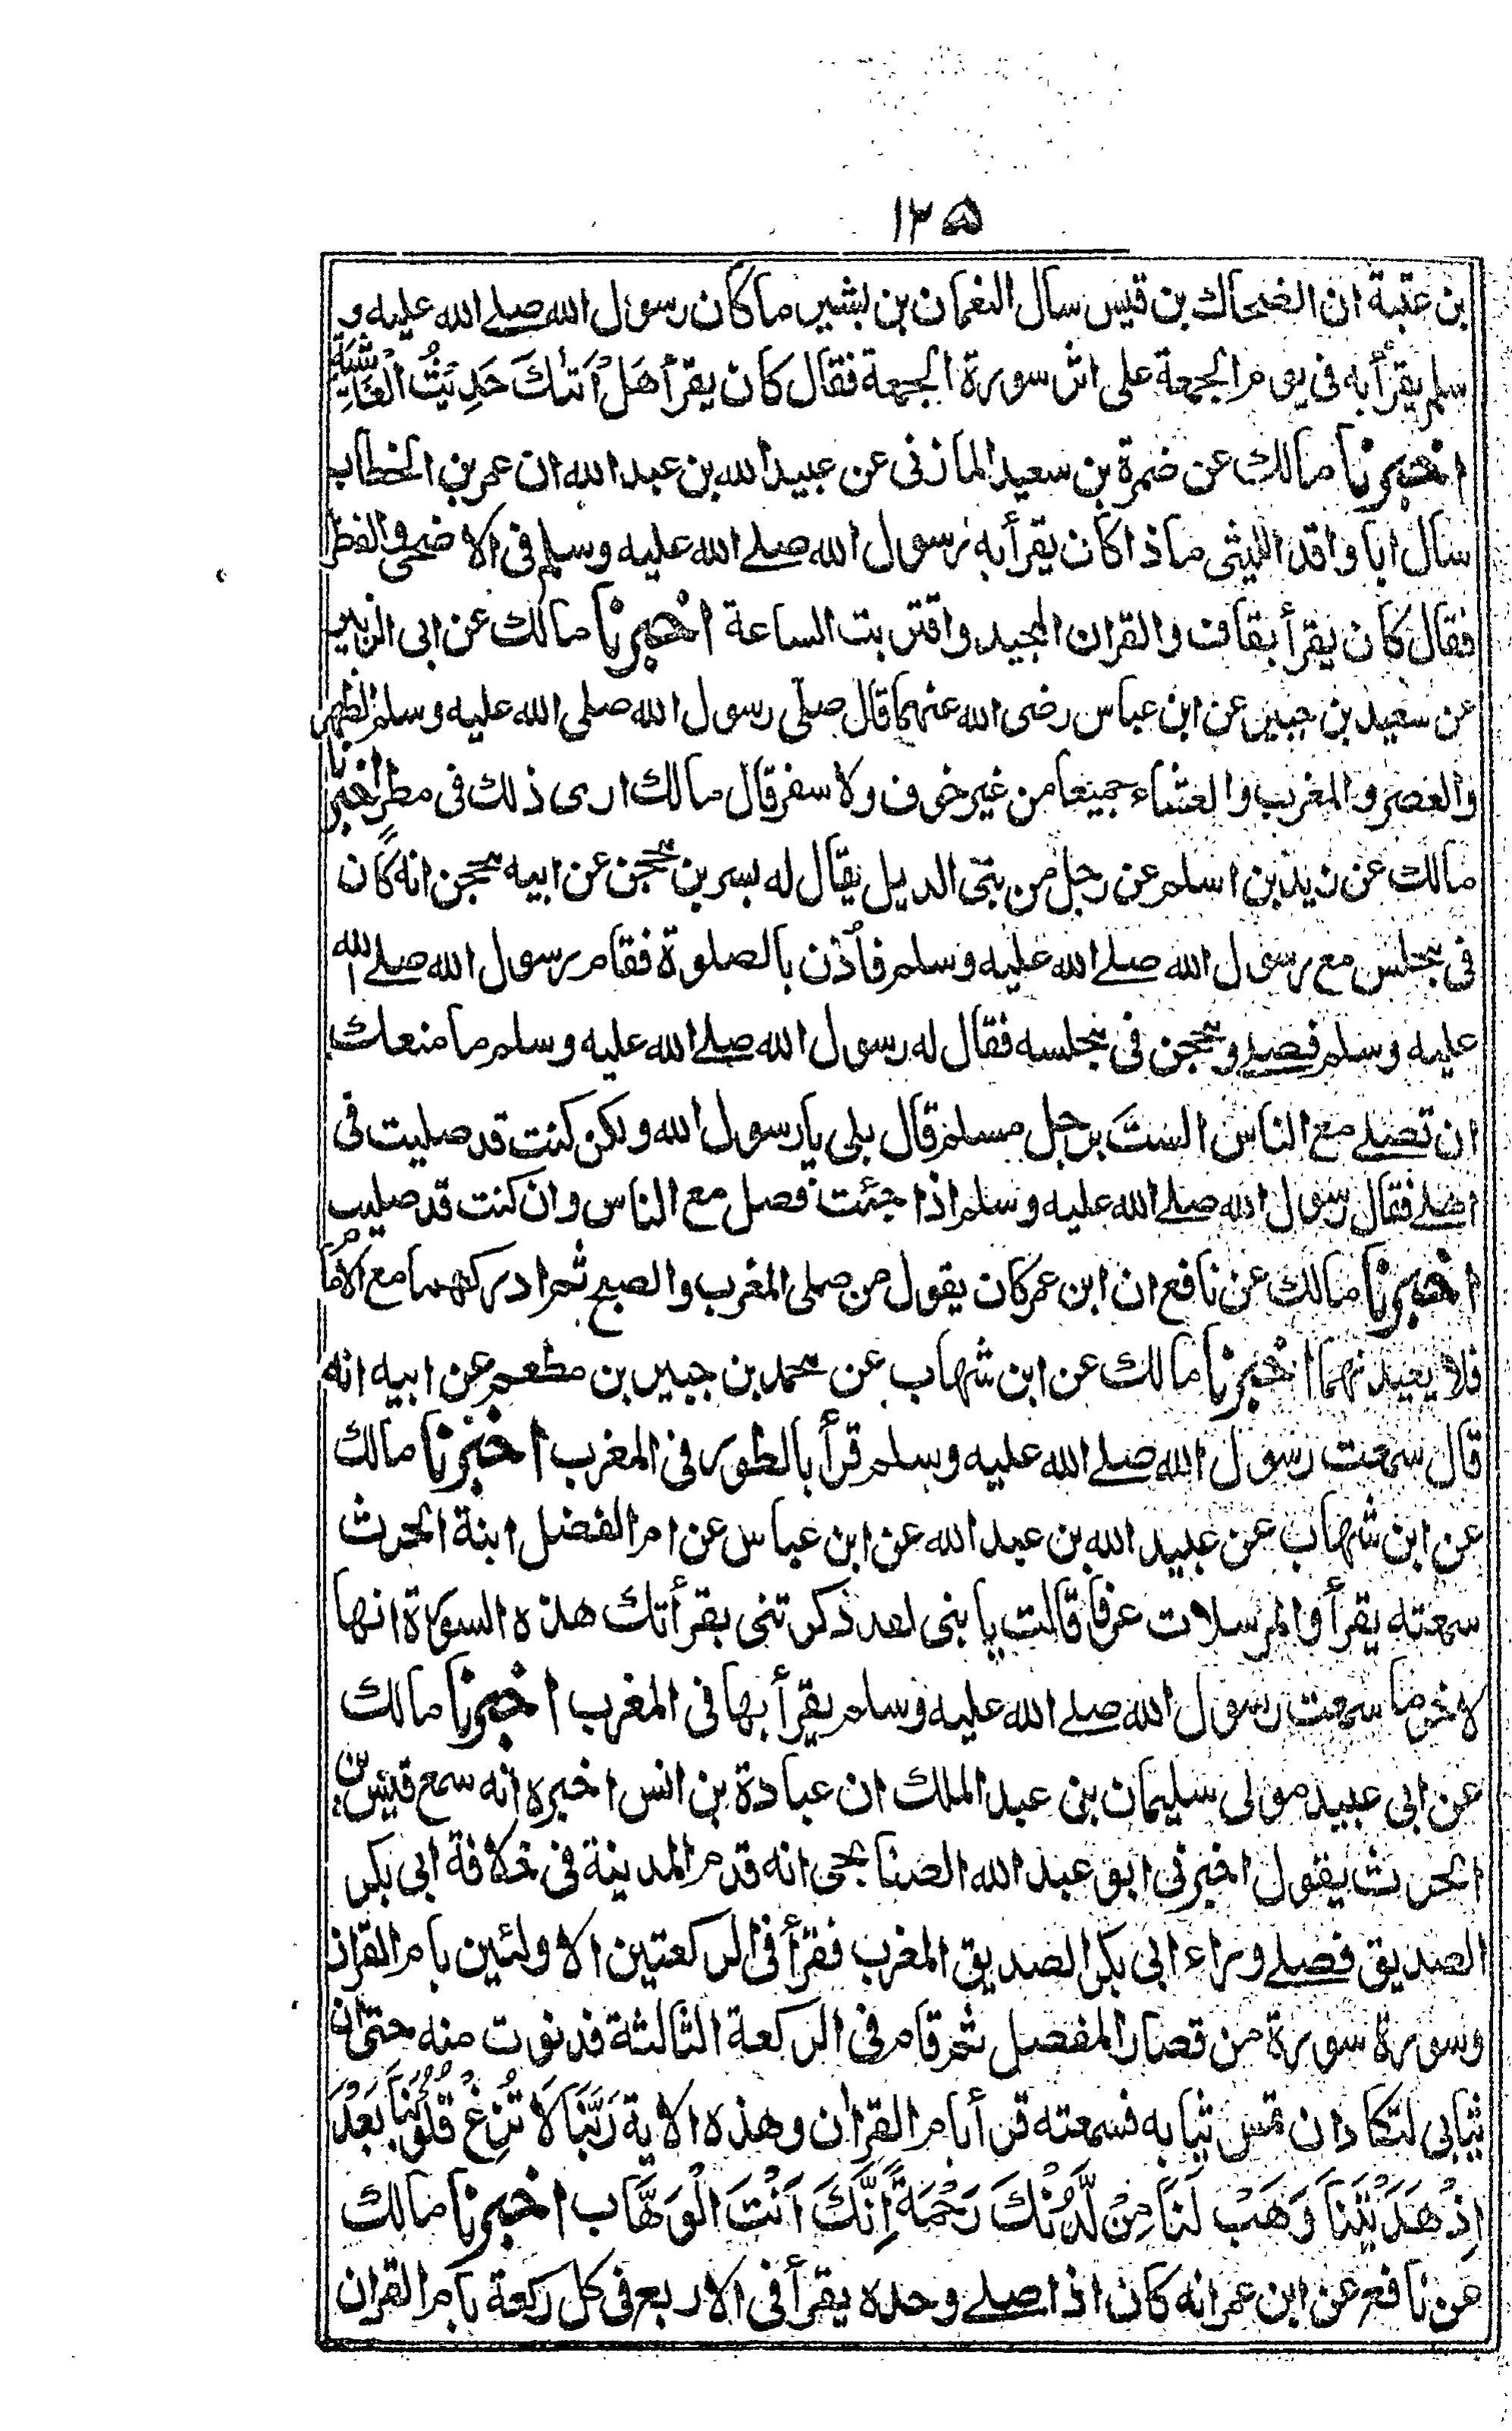 ١٢٥
بن عتبة ان الضحاك بن قيس سال النعمان بن بشير ما كان رسول الله صلے الله عليه و
سلم يقرأ به فى يوم الجمعة على اثر سورة الجمعة فقال كان يقرأ هَلْ اَتٰىكَ حَدِيْثُ الْغَاشِيَةِ
اخبرنا مالك عن ضمرة بن سعيد المازنى عن عبيد الله بن عبد الله ان عمر بن الخطاب
سال ابا واقد الليثى ماذا كان يقرأ به رسول الله صلے الله عليه وسلم فى الاضحى والفطر
فقال كان يقرأ بقاف والقران المجيد واقتربت الساعة اخبرنا مالك عن ابى الزبير
عن سعيد بن جبير عن ابن عباس رضى الله عنهما قال صلّى رسول الله صلى الله عليه وسلم الظهر
والعصر والمغرب والعشاء جميعا من غير خوف ولا سفر قال مالك ارى ذلك فى مطر اخبرنا
مالك عن زيد بن اسلم عن رجل من بنى الديل يقال له بسر بن محجن عن ابيه محجن انه كان
فى مجلس مع رسول الله صلے الله عليه وسلم فأذن بالصلوة فقام رسول الله صلے الله
عليه وسلم فصلے ومحجن فى مجلسه فقال له رسول الله صلے الله عليه وسلم ما منعك
ان تصلے مع الناس الستَ برجل مسلم قال بلى يا رسول الله ولكن كنت قد صليت فى
اهلے فقال رسول الله صلے الله عليه وسلم اذا جئت فصل مع الناس وان كنت قد صليت
اخبرنا مالك عن نافع ان ابن عمر كان يقول من صلى المغرب والصبح ثم ادركهما مع الامام
فلا يعيدنهما اخبرنا مالك عن ابن شهاب عن محمد بن جبير بن مطعم عن ابيه انه
قال سمعت رسول الله صلے الله عليه وسلم قرأ بالطور فى المغرب اخبرنا مالك
عن ابن شهاب عن عبيد الله بن عبد الله عن ابن عباس عن ام الفضل ابنة الحرث
سمعته يقرأ والمرسلات عرفا قالت يا بنى لقد ذكرتنى بقرأتك هذه السورة انها
لاخر ما سمعت رسول الله صلے الله عليه وسلم يقرأ بها فى المغرب اخبرنا مالك
عن ابى عبيد مولى سليمان بن عبد الملك ان عبادة بن انس اخبره انه سمع قيس بن
الحرث يقول اخبرنى ابو عبد الله الصنابحى انه قدم المدينة فى خلافة ابى بكر
الصديق فصلے وراء ابى بكر الصديق المغرب فقرأ فى الركعتين الاولئين بام القران
وسورة سورة من قصار المفصل ثم قام فى الركعة الثالثة فدنوت منه حتى ان
ثيابى لتكاد ان تمس ثيابه فسمعته قرأ بام القران وهذه الاية رَبَّنَا لَا تُزِغْ قُلُوْبَنَا بَعْدَ
اِذْ هَدَيْتَنَا وَهَبْ لَنَا مِنْ لَّدُنْكَ رَحْمَةً اِنَّكَ اَنْتَ الْوَهَّاب اخبرنا مالك
عن نافع عن ابن عمر انه كان اذا صلے وحده يقرأ فى الاربع فى كل ركعة بام القران